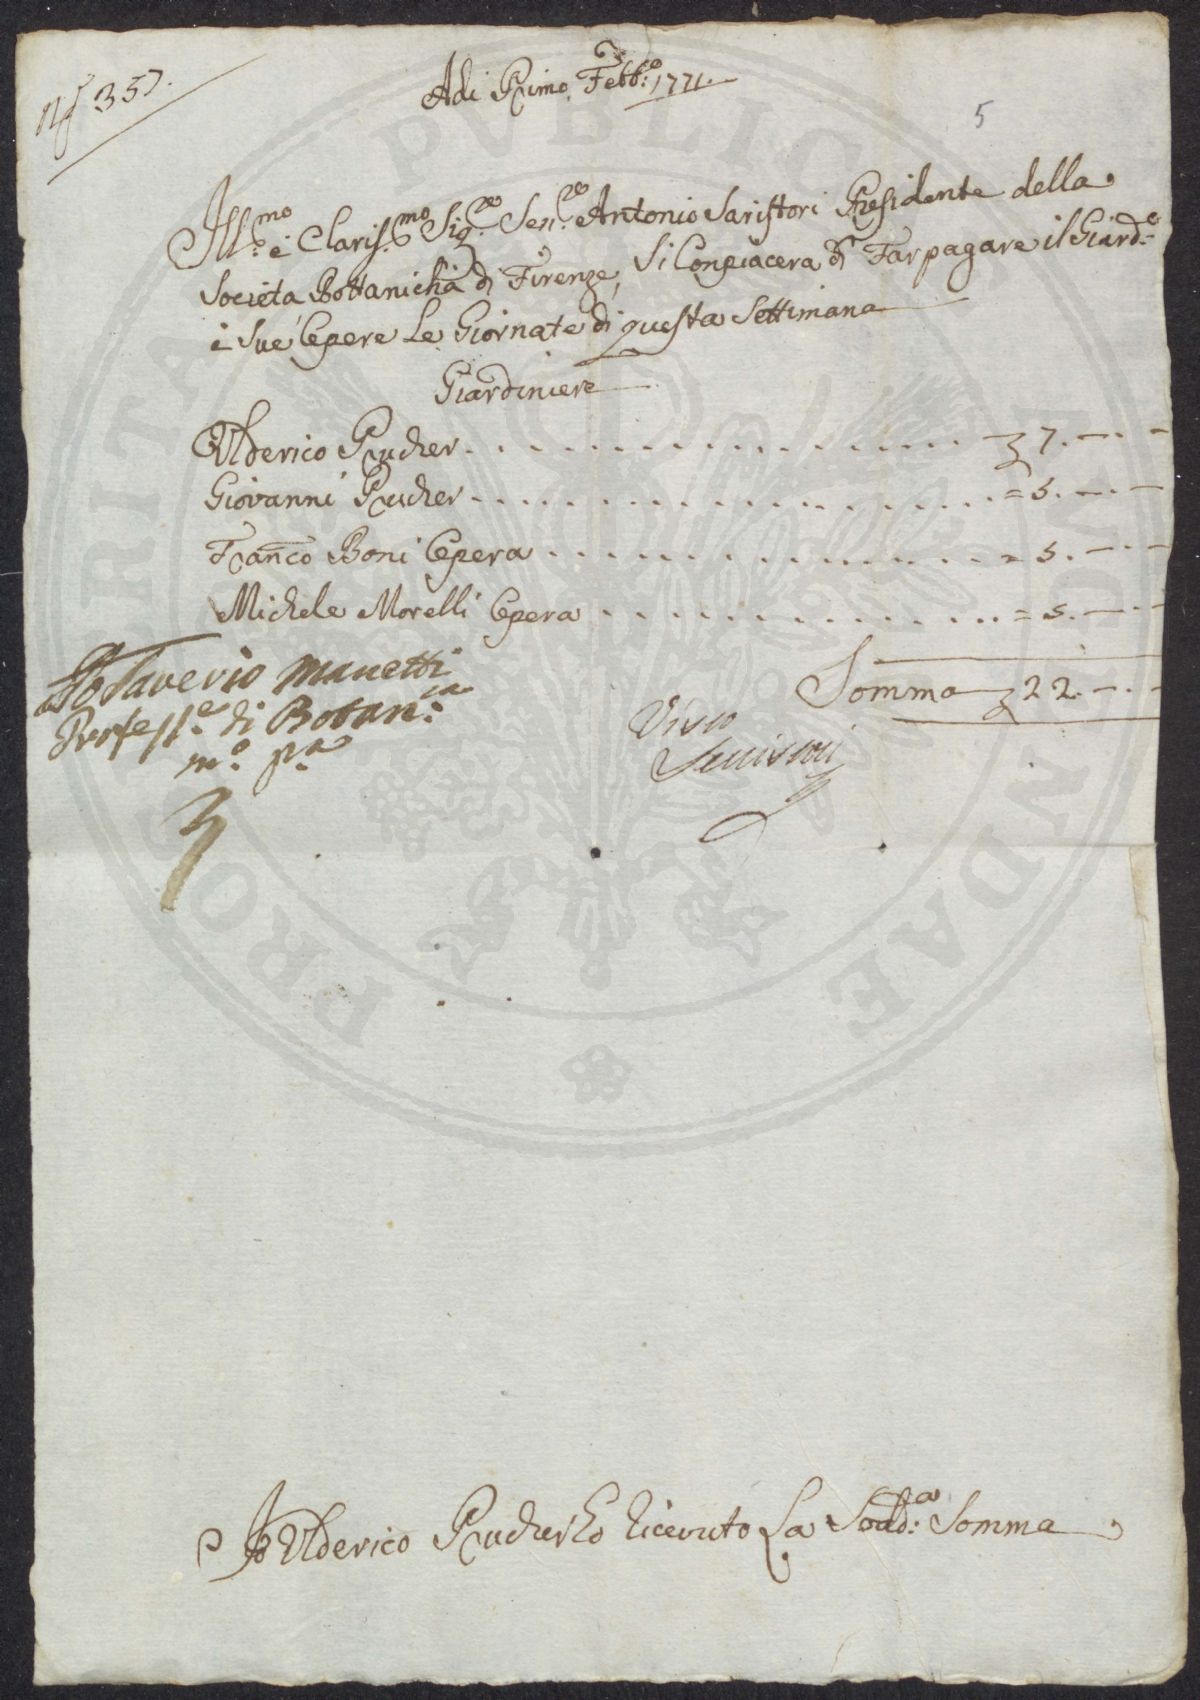 Nº 357.
Adi Primo Febb:º 1771.
5
Ill:mo e Claris:mo Sig:re Sen:re Antonio Saristori Presidente della
Società Bottanicha di Firenze, Si Conpiacera di Far pagare il Giard:e
è Sue Opere Le Giornate di questa Settimana
Giardiniere
Ulderico Prucher . . . . . . . . . . . . . . . . . . . . . 7. — . —
Giovanni Prucher . . . . . . . . . . . . . . . . . . . . . = 5. — . —
Franco Boni Opera . . . . . . . . . . . . . . . . . . = 5. — . —
Michele Morelli Opera . . . . . . . . . . . . . . . . = 5. — . —
Somma 22. — . —
Io Saverio Manetti
Profess:e di Botan:ca
m:o p:a
Visto
Io Ulderico Prucher ho ricevuto La Sodd:a Somma
PROSPERITATI PUBLICAE AUGENDAE